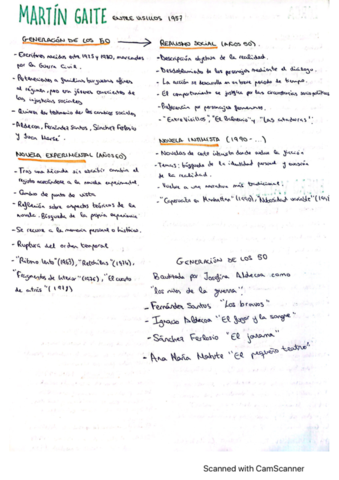 MARTÍN GAITE ENTRE VISILLOS 1957
GENERACIÓN DE LOS 50
- Escritores nacidos entre 1925 y 1930, marcados
por la Guerra Civil.
- Pertenecientes a familias burguesas afines
al régimen, pero son jóvenes conscientes de
las injusticias sociales
- Quieren dar testimonio de los cambios sociales
- Aldecoa, Fernández Santos, Sánchez Ferlosio
y Juan Marsé.
NOVELA EXPERIMENTAL (AÑOS 60)
- Tras una década sin escribir
- Cambio de punto de vista
- Reflexión sobre aspectos teóricos de la
novela. Búsqueda de la propia experiencia
- Se recurre a la memoria personal o histórica.
- Ruptura del orden temporal
- "Ritmo lento" (1963), "Retahílas" (1974),
"Fragmentos de interior" (1976), "El cuarto
de atrás" (1978)
REALISMO SOCIAL (AÑOS 50)
- Descripción objetiva de la realidad.
- de los personajes mediante el diálogo.
- La acción se desarrolla en un breve periodo de tiempo.
- El comportamiento se justifica por las circunstancias
- Preferencia por personajes femeninos.
- "Entre Visillos", "El Balneario" y "Las ataduras".
NOVELA INTIMISTA (1990 - ...)
- Novelas de corte intimista donde
- Temas: búsqueda de la identidad personal y evasión
de la realidad.
- Vuelve a una narrativa más tradicional.
- "Caperucita en Manhattan" (1990), "Nubosidad variable"
GENERACIÓN DE LOS 50
Bautizada por Josefina Aldecoa como
"los niños de la guerra"
- Fernández Santos "Los bravos"
- Ignacio Aldecoa "El fulgor y la sangre"
- Sánchez Ferlosio "El Jarama"
- Ana María Matute "El pequeño teatro"
Scanned with CamScanner